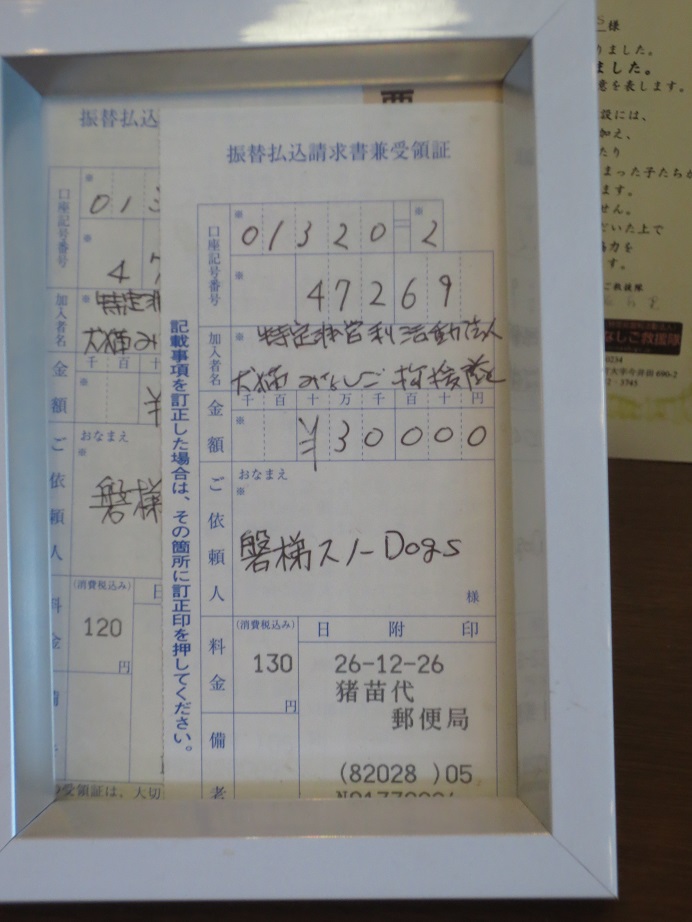 様
りました。
ました。
意を表します。
設には、
加え、
たり
まった子たちが
ます。
せん。
だいた上で
協力を
す。
ご救援隊
なしご救援隊
0234
町大字今井田 690-2
2 3745
振替払込
口座記号番号
※
013
※
47
加入者名
※
特定非
犬猫み
金額
千 百 十
※
¥
ご依頼人
おなまえ
※
磐梯
料金
(消費税込み)
120
円
受領証は、大切
記載事項を訂正した場合は、その箇所に訂正印を押してください。
振替払込請求書兼受領証
口座記号番号
※ ※
01320=2
※
47269
加入者名
※ 特定非営利活動法人
犬猫 みなしご 救援隊
金額
千 百 十 万 千 百 十 円
※
¥30000
ご依頼人
おなまえ
※
磐梯スノーDogs
様
料金
(消費税込み)
130
円
日 附 印
26-12-26
猪苗代
郵便局
(82028 )05
備考